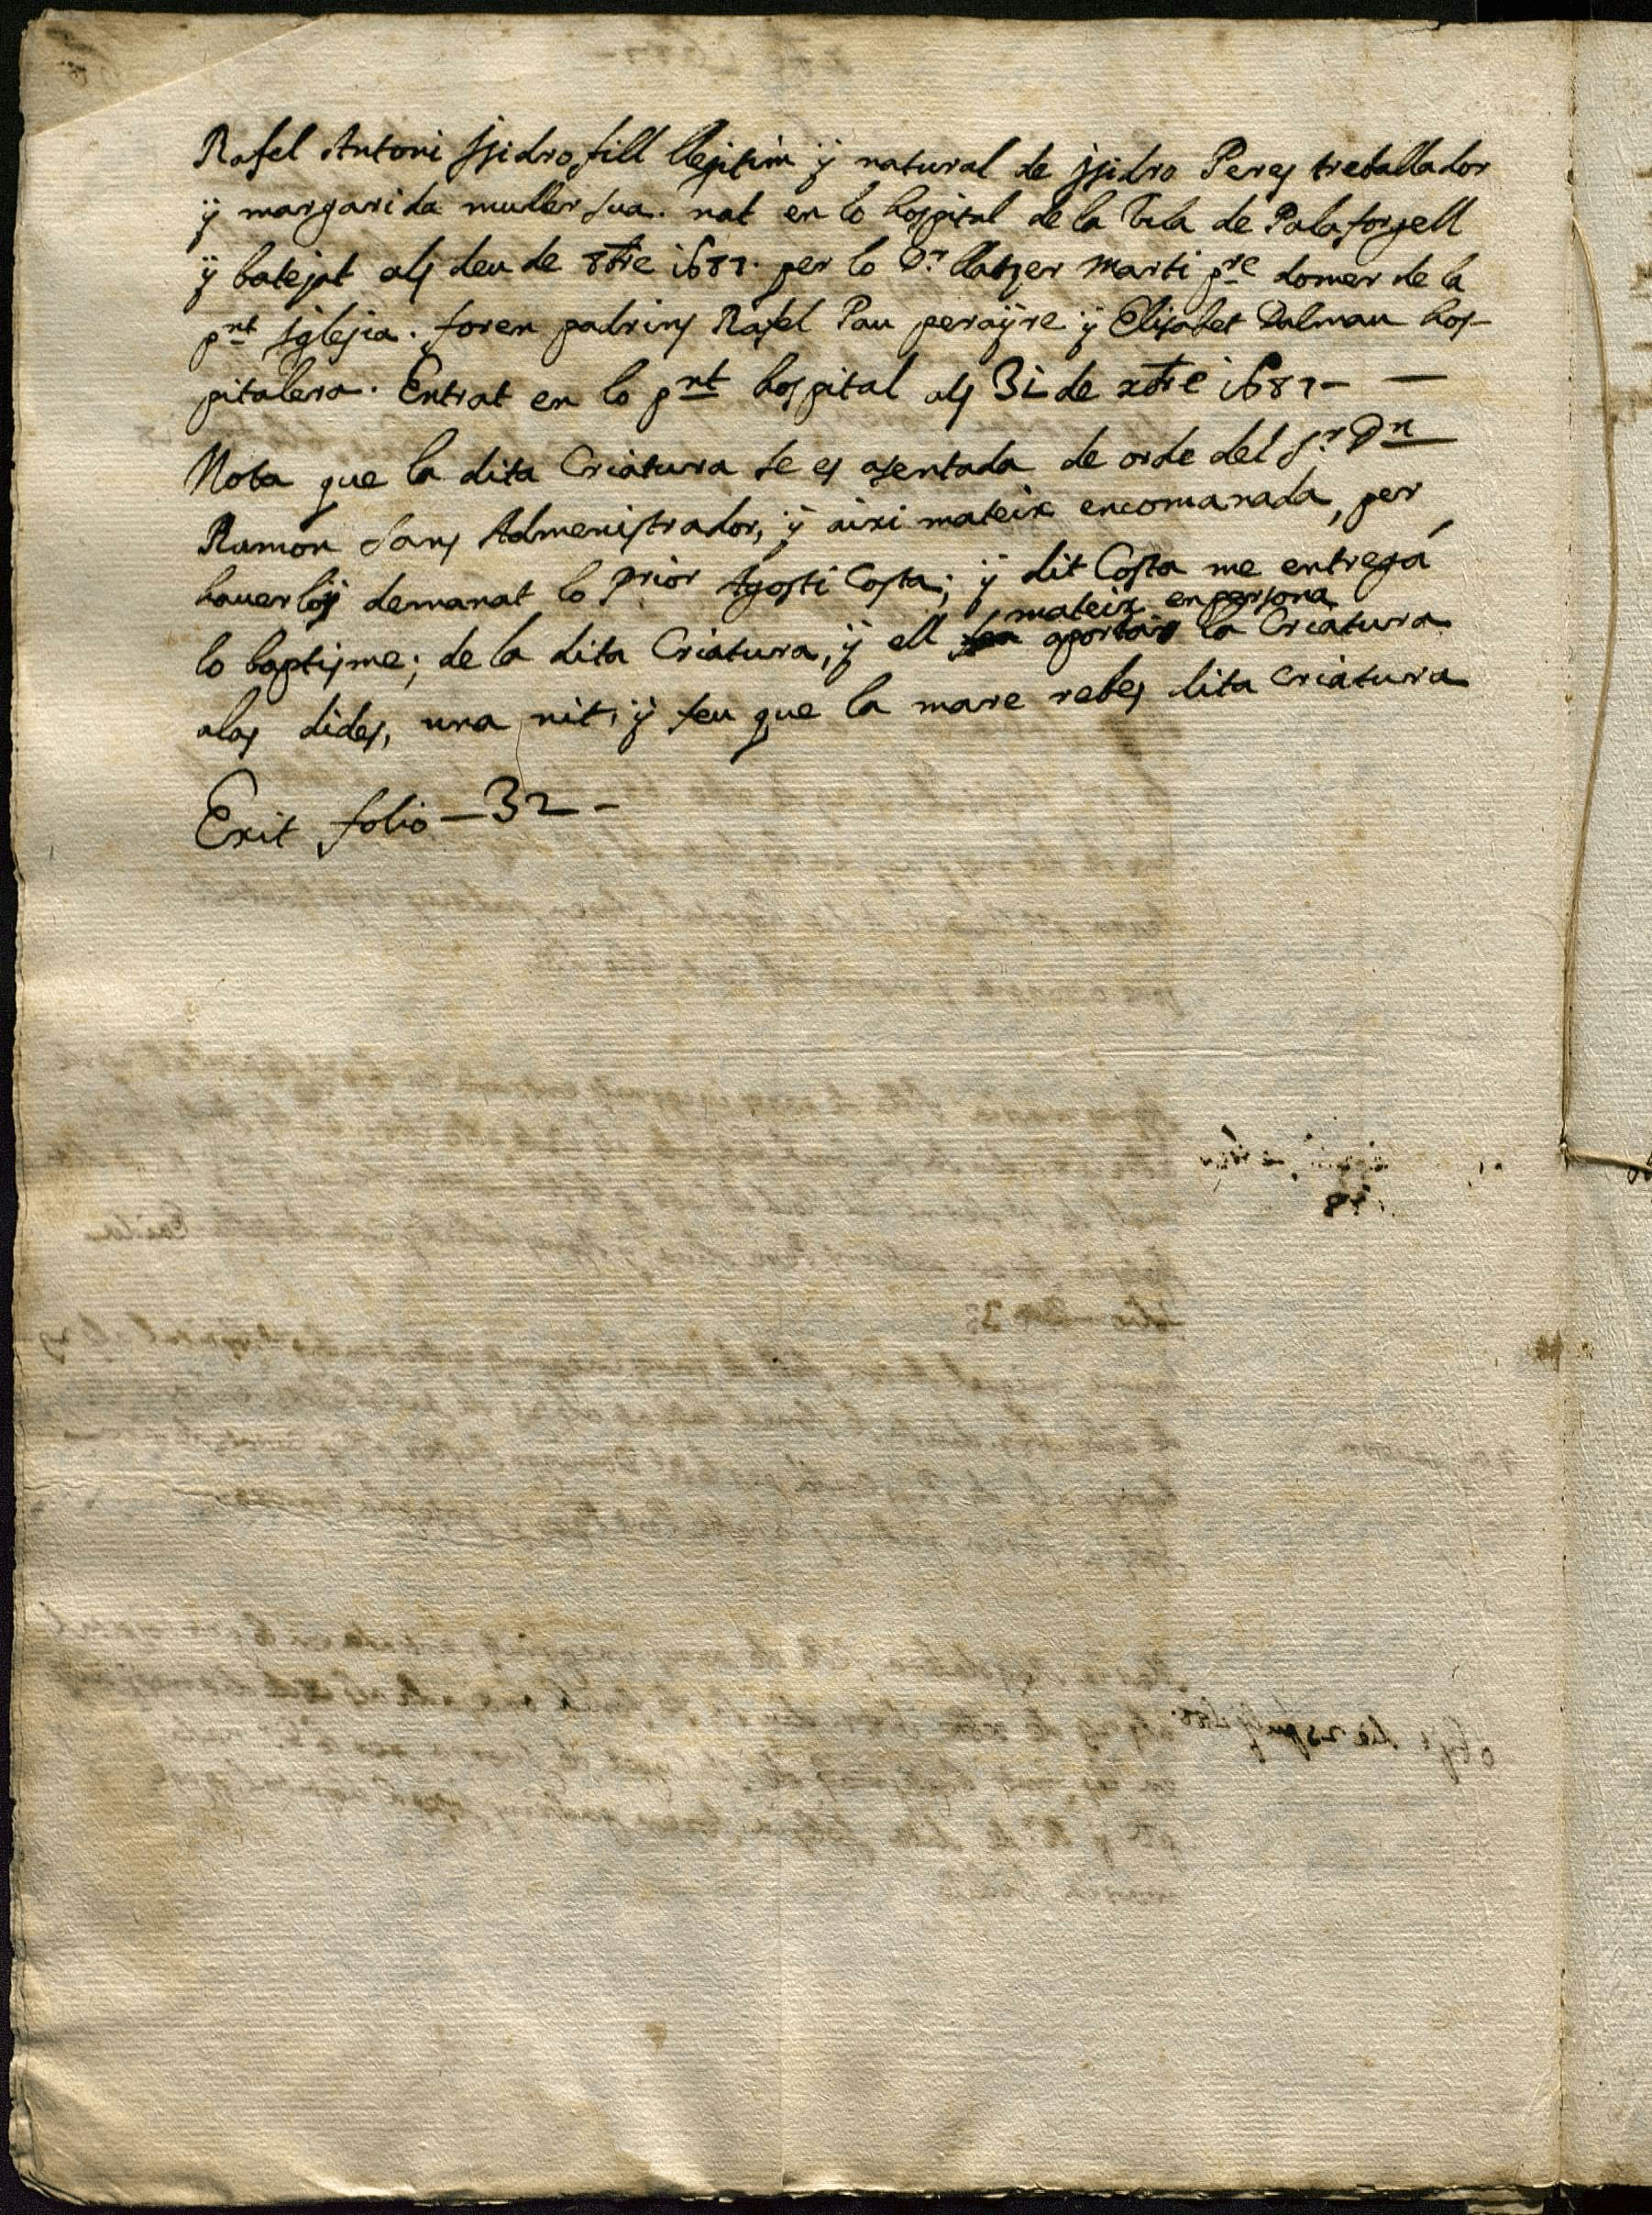 Rafel Antoni Jsidro fill llegitim ÿ natural de jsidro Peres treballador
ÿ margarida muller sua. nat en lo hospital de la Vila de Palafurgell
ÿ batejat als deu de 8bre 1687. per lo Dr. llatzer Marti pre domer de la
pnt Jglesia. foren padrins Rafel Pau peraÿre ÿ Elisabet Dalmau hos-
pitalera. Entrat en lo pnt hospital als 31 de xbre 1687 -
Nota que la dita Criatura se es asentada de orde del Sr. Dn
Ramon Sans Admenistrador, ÿ aixi mateix encomanada, per
hauerloÿ demanat lo Prior Agosti Costa; ÿ dit Costa me entregá
mateix en persona
lo baptisme; de la dita Criatura, ÿ ell aportar la Criatura
alas didas, una nit, ÿ feu que la mare rebes dita Criatura
Exit folio - 32 -